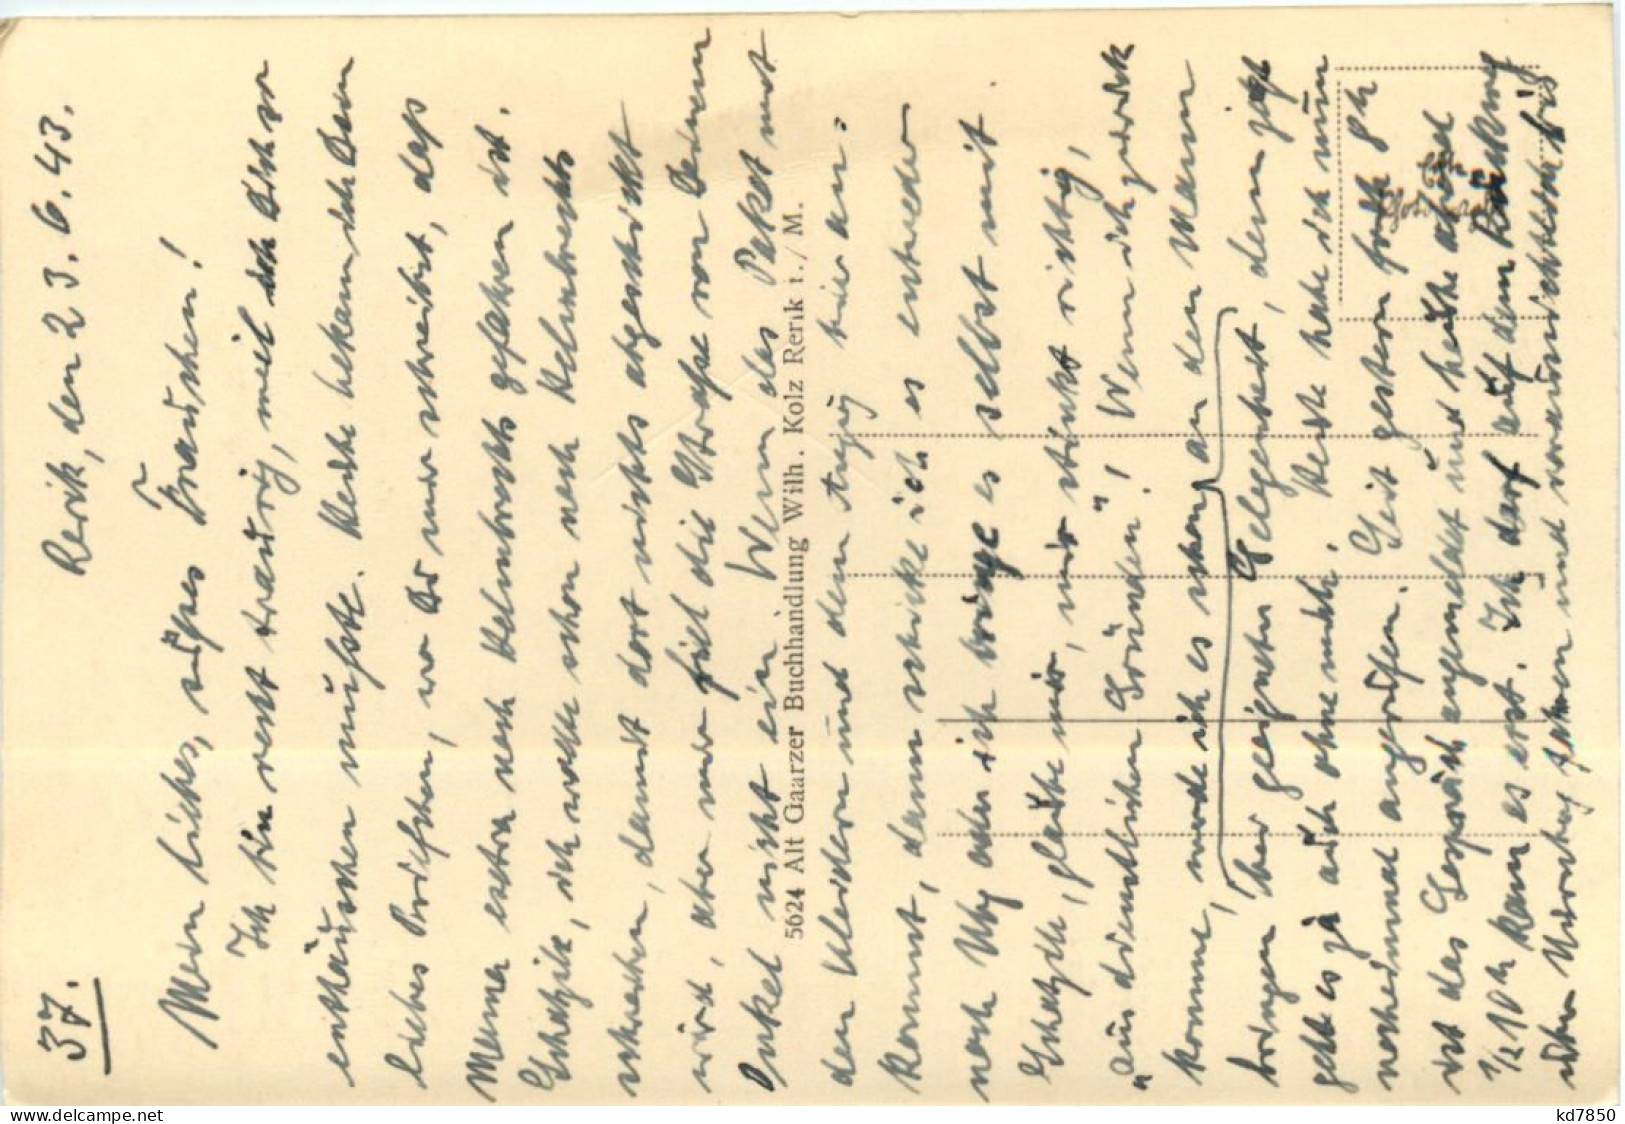 37.
Rerik, den 23. 6. 43.
Mein liebes, süßes Frauchen!
Ich bin recht traurig, weil ich Dich so
enttäuschen mußte. Heute bekam ich Dein
liebes Briefchen, wo Du mir schreibst, daß
Mama extra nach Helmbrechts gefahren ist.
Schatzile, ich wollte schon nach Helmbrechts
schreiben, damit dort nichts abgeschickt
wird, aber mir fiel die Strasse von Deinem
Onkel nicht ein. Wenn das Paket mit
den Kleidern und dem hier an-
kommt, dann schicke ich es entweder
nach Mbg oder ich bringe es selbst mit.
Schatzile, glaube mir, mir stinkt richtig,
"aus dienstlichen Gründen"! Wenn ich zurück
komme, werde ich es schon an den Mann
bringen bei geeigneter Gelegenheit, denn jetzt
geht es ja auch ohne mich. Heute habe ich nun
nocheinmal angerufen. Seit gestern früh
ist das Gespräch angemeldet und heute abend
1/2 10 h kam es erst. Ich darf auf dem Rückweg
über fahren und voraussichtlich bis
5624 Alt Gaarzer Buchhandlung Wilh. Kolz Rerik i./M.
delcampe.net
kd7850